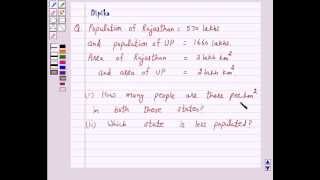 Dipika
Q. Population of Rajasthan = 570 lakhs
and population of UP = 1660 lakhs.
Area of Rajasthan = 3 lakh km²
and area of UP = 2 lakh km²
(i) How many people are there per km²
in both these states?
(ii) Which state is less populated?